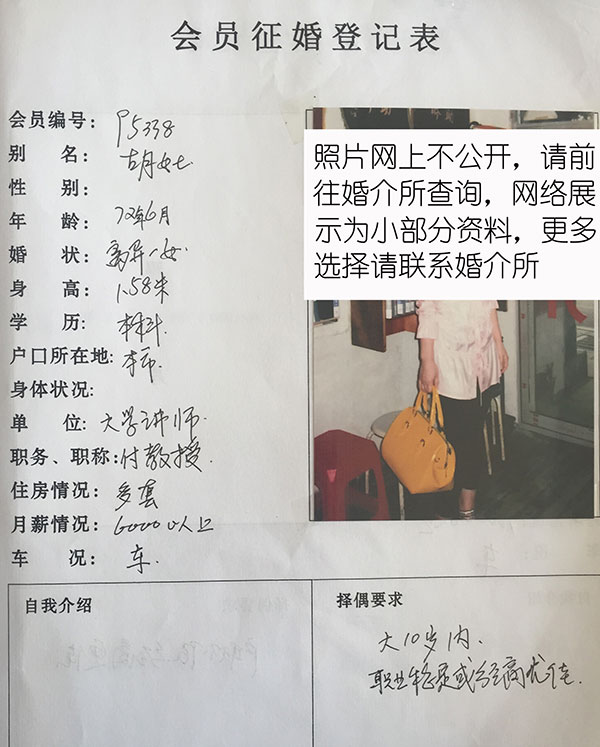 会员征婚登记表
会员编号： P5338
别 名： 胡女士
性 别：
年 龄： 72年6月
婚 状： 离异一女
身 高： 1.58米
学 历： 本科.
户口所在地: 本市.
身体状况:
单 位: 大学讲师.
职务、职称: 付教授.
住房情况: 多套
月薪情况: 6000以上
车 况: 车.
照片网上不公开，请前
往婚介所查询，网络展
示为小部分资料，更多
选择请联系婚介所
自我介绍
择偶要求
大10岁内.
职业稳定或经商优佳.